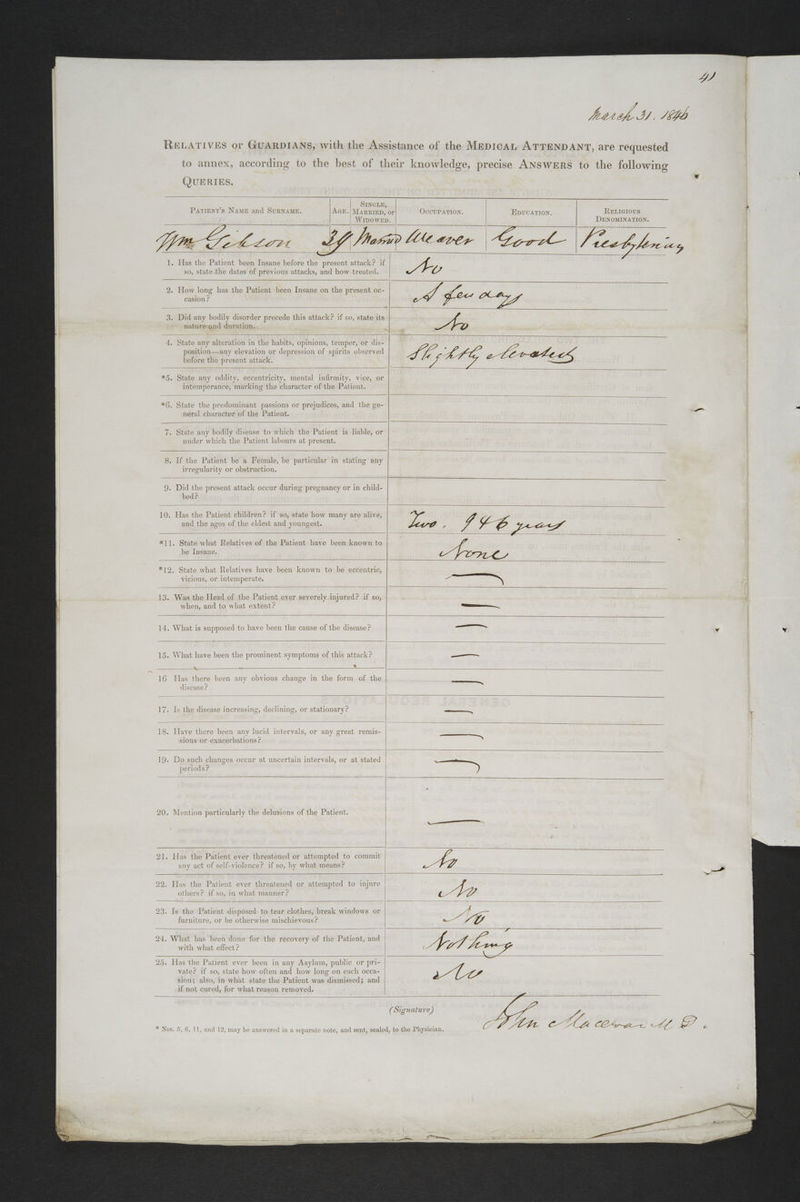 41
March 31. 1846
RELATIVES or GUARDIANS, with the Assistance of the MEDICAL ATTENDANT, are requested
to annex, according to the best of their knowledge, precise ANSWERS to the following
QUERIES.
PATIENT'S NAME and SURNAME. AGE. SINGLE, MARRIED, or WIDOWED. OCCUPATION. EDUCATION. RELIGIOUS DENOMINATION.
Wm Gibson 39 Married Weaver Good Presbyterian
1. Has the Patient been Insane before the present attack? if
so, state the dates of previous attacks, and how treated.
No
2. How long has the Patient been Insane on the present oc-
casion?
A few days
3. Did any bodily disorder precede this attack? if so, state its
nature and duration.
No
4. State any alteration in the habits, opinions, temper, or dis-
position—any elevation or depression of spirits observed
before the present attack.
Slightly elevated
*5. State any oddity, eccentricity, mental infirmity, vice, or
intemperance, marking the character of the Patient.
*6. State the predominant passions or prejudices, and the ge-
neral character of the Patient.
7. State any bodily disease to which the Patient is liable, or
under which the Patient labours at present.
8. If the Patient be a Female, be particular in stating any
irregularity or obstruction.
9. Did the present attack occur during pregnancy or in child-
bed?
10. Has the Patient children? if so, state how many are alive,
and the ages of the eldest and youngest.
Two. 9 & 6 years
*11. State what Relatives of the Patient have been known to
be Insane.
None
*12. State what Relatives have been known to be eccentric,
vicious, or intemperate.
—
13. Was the Head of the Patient ever severely injured? if so,
when, and to what extent?
—
14. What is supposed to have been the cause of the disease?
—
15. What have been the prominent symptoms of this attack?
—
16 Has there been any obvious change in the form of the
disease?
—
17. Is the disease increasing, declining, or stationary?
—
18. Have there been any lucid intervals, or any great remis-
sions or exacerbations?
—
19. Do such changes occur at uncertain intervals, or at stated
periods?
—
20. Mention particularly the delusions of the Patient.
—
21. Has the Patient ever threatened or attempted to commit
any act of self-violence? if so, by what means?
No
22. Has the Patient ever threatened or attempted to injure
others? if so, in what manner?
No
23. Is the Patient disposed to tear clothes, break windows or
furniture, or be otherwise mischievous?
No
24. What has been done for the recovery of the Patient, and
with what effect?
Nothing
25. Has the Patient ever been in any Asylum, public or pri-
vate? if so, state how often and how long on each occa-
sion; also, in what state the Patient was dismissed; and
if not cured, for what reason removed.
No
(Signature)
John Macewan M.D.
* Nos. 5, 6, 11, and 12, may be answered in a separate note, and sent, sealed, to the Physician.